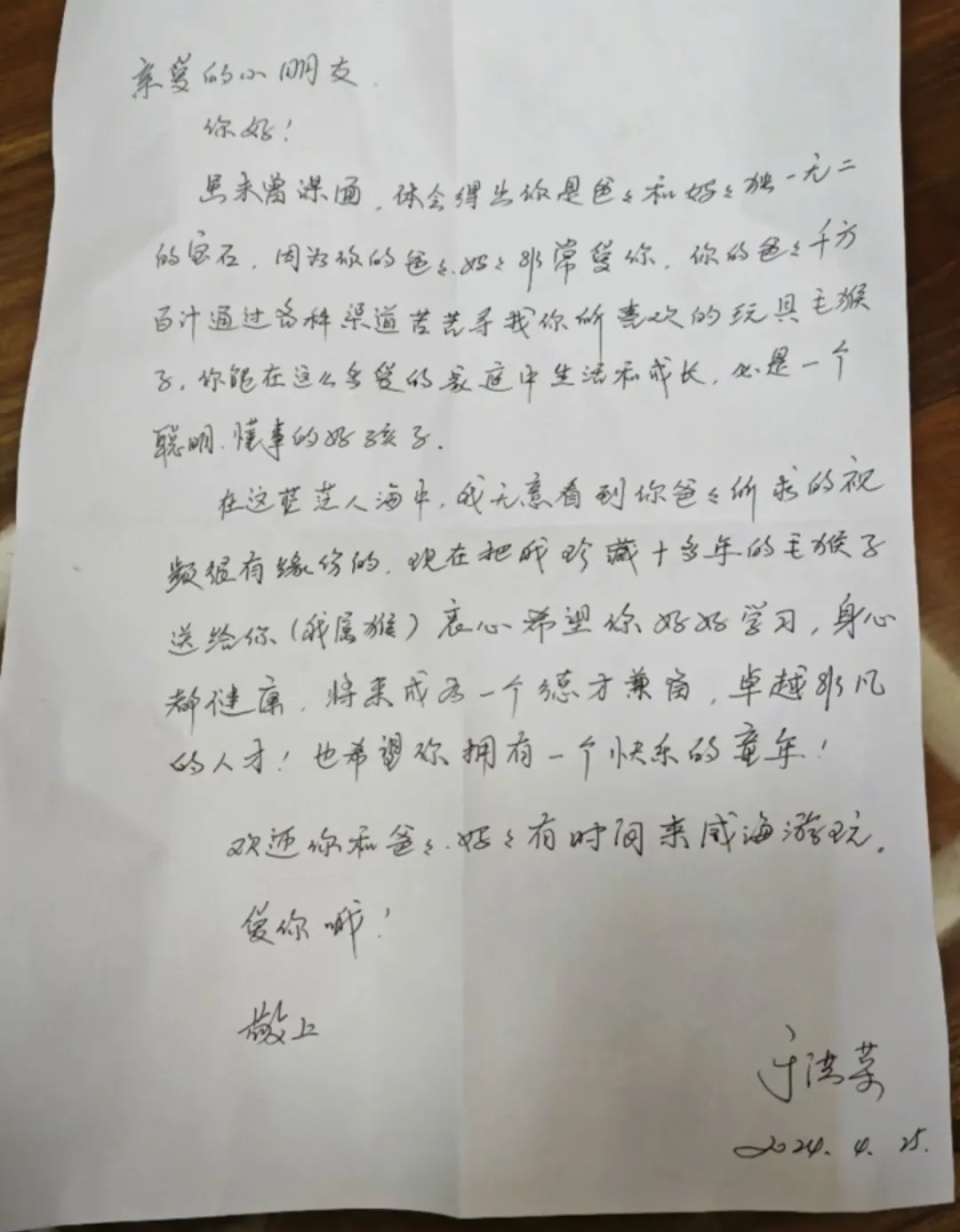 亲爱的小朋友.
你好！
虽未曾谋面，体会得出你是爸々和妈々独一无二
的宝石，因为你的爸々.妈々非常爱你，你的爸々千方
百计通过各种渠道苦苦寻找你所喜欢的玩具毛猴
子，你能在这么多爱的家庭中生活和成长，必是一个
聪明.懂事的好孩子.
在这茫茫人海中，我无意看到你爸々所求的视
频很有缘份的，现在把我珍藏十多年的毛猴子
送给你（我属猴）衷心希望你好好学习，身心
都健康，将来成为一个德才兼备，卓越非凡
的人才！也希望你拥有一个快乐的童年！
欢迎你和爸々.妈々有时间来威海游玩。
爱你哦！
敬上
于洪
2024.4.25.